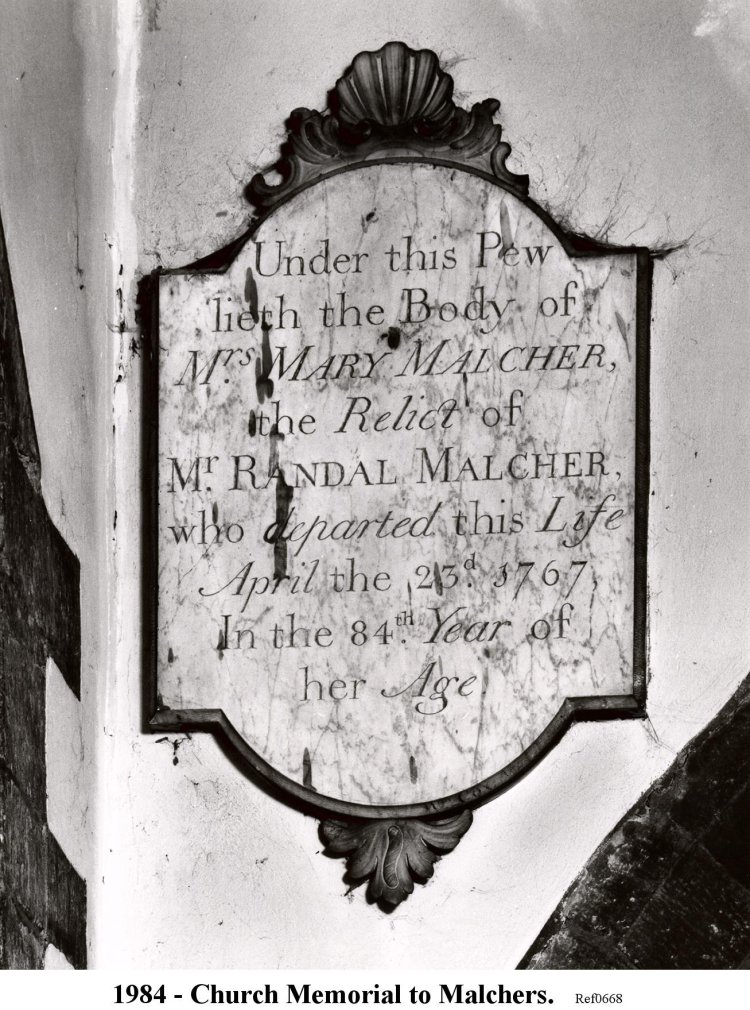 Under this Pew
lieth the Body of
Mrs. MARY MALCHER,
the Relict of
Mr. RANDAL MALCHER,
who departed this Life
April the 23d. 1767,
In the 84th. Year of
her Age.
1984 - Church Memorial to Malchers. Ref0668